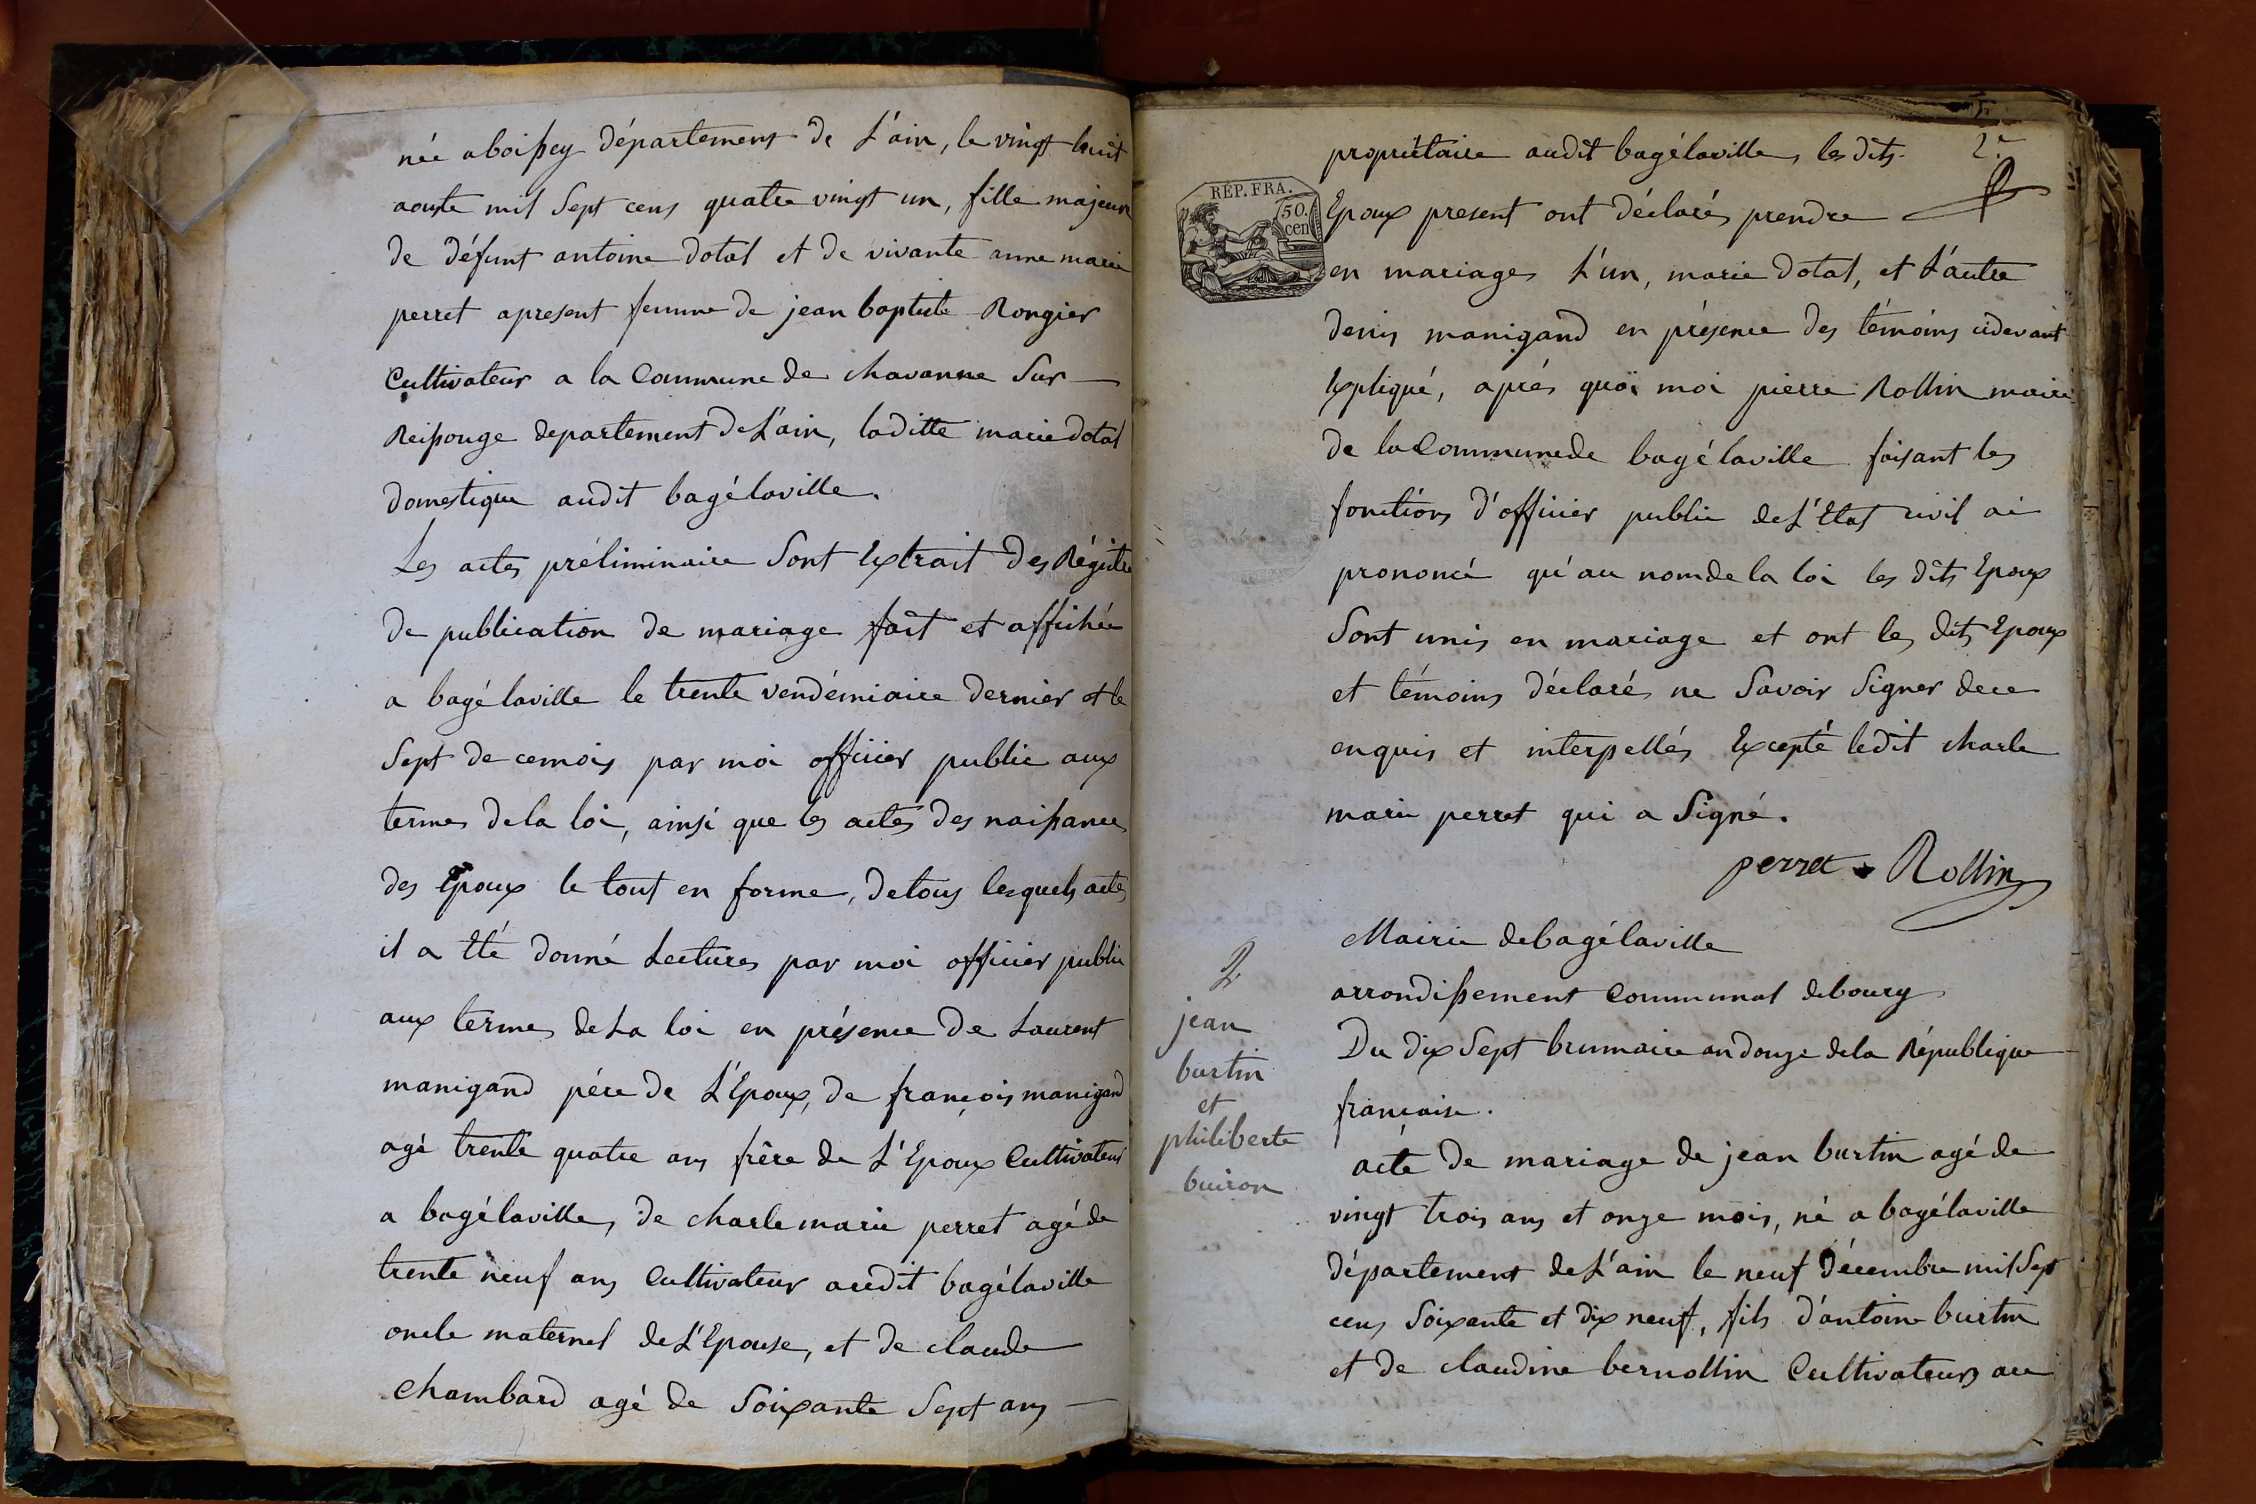 née aboissey département de L'ain, le vingt huit
aouste mil Sept cens quatre vingt un, fille majeure
de défunt antoine dotal et de vivante anne marie
perret apresent femme de jean baptiste Rongier
Cultivateur a la Commune de chavanne Sur
Reissouge departement de L'ain, laditte marie dotal
domestique audit bagélaville.
Les actes préliminaire Sont Extrait des Régistre
de publication de mariage fait et affichée
a bagélaville le trente vendémiaire dernier et le
Sept de cemois par moi officier public aux
termes dela loi, ainsi que les actes des naissances
des Epoux le tout en forme, detous lesquels actes
il a Eté donné Lectures par moi officier public
aux termes deLa loi en présence de Laurent
manigand pére de L'Epoux, de françois manigand
agé trente quatre ans frère de L'Epoux Cultivateur
a bagélaville, de charle marie perret agé de
trente neuf ans Cultivateur audit bagélaville
oncle maternel deL'Epouse, et de claude
chambard agé de Soixante Sept ans
propriétaire audit bagélaville, les dits
2e
RÉP. FRA.
50.
cen
Epoux present ont déclarés prendre
en mariages L'un, marie dotal, et L'autre
denis manigand en présence des témoins cidevant
Expliqué, aprés quoi moi pierre Rollin maire
de laCommunede bagélaville faisant les
fonctions d'officier public deL'Etat civil ai
prononcé qu'au nomde la loi les dits Epoux
Sont unis en mariage et ont les dits Epoux
et témoins déclaré ne Savoir Signer dece
enquis et interpellés Excepté ledit charle
marie perret qui a Signé.
perret Rollin
Mairie debagélaville
arrondissement Communal debourg
Du dix Sept brumaire an douze dela République
francaise.
2
jean
burtin
et
philiberte
buiron
acte de mariage de jean burtin agé de
vingt trois ans et onze mois, né a bagélaville
département deL'ain le neuf Décembre mil Sept
cens Soixante et dix neuf, fils d'antoine burtin
et de claudine bernollin Cultivateurs au